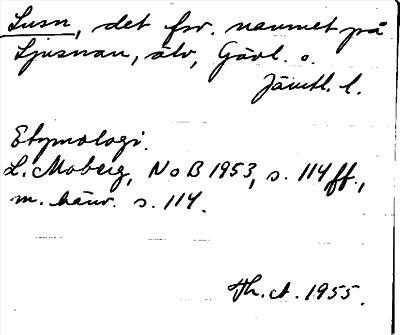 Lusn, det fsv. namnet på
Ljusnan, älv, Gävl. o.
Jämtl. l.
Etymologi.
L. Moberg, NoB 1953, s. 114 ff.,
m. hänv. s. 114.
Th. ct. 1955.